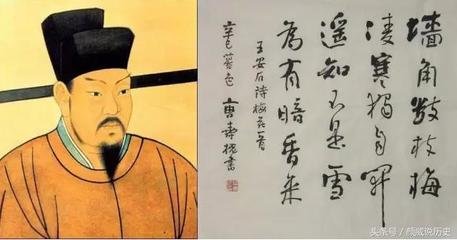 墙角数枝梅
凌寒独自開
遥知不是雪
為有暗香来
王安石诗梅花一首
辛巳
头条号 / 颜威说历史